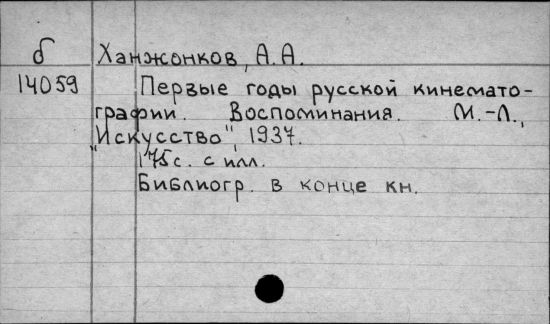 б Ханжонков, А.А.
14059 Первые годы русской кинемато-
графии. Воспоминания. М.-Л.,
"Искусство", 1937.
175с. с илл.
Библиогр. в конце кн.